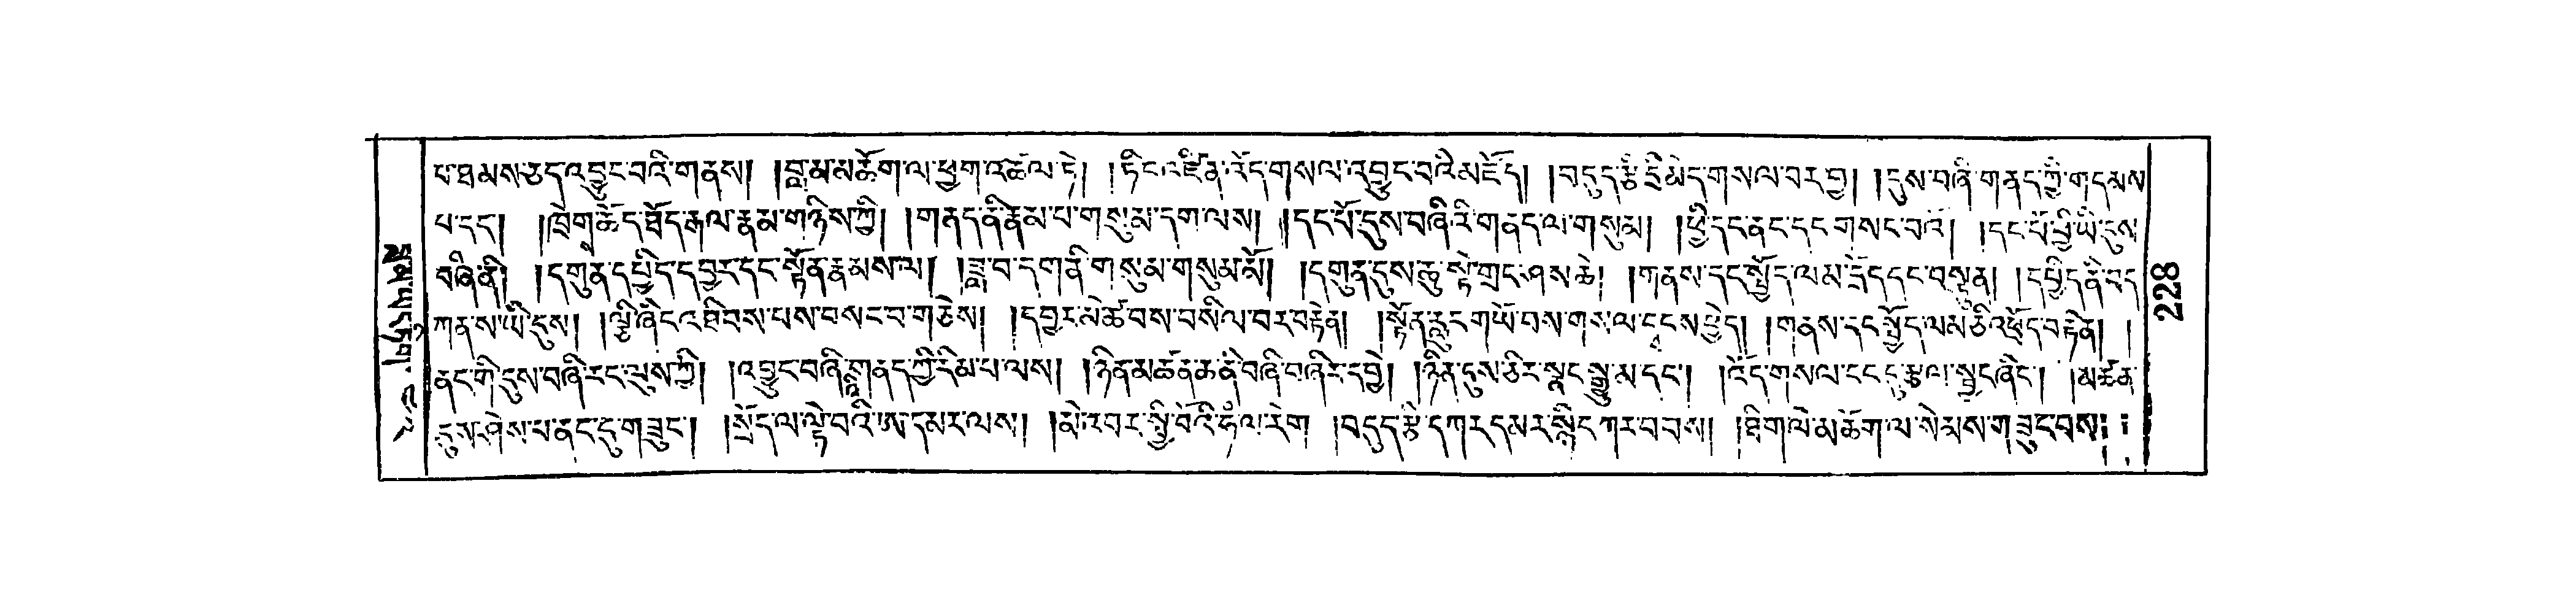 པ་ཐམས་ཅད་འབྱུང་བའི་གནས། །བླ་མ་མཆོག་ལ་ཕྱག་འཚལ་ཏེ། །ཏིང་འཛིན་འོད་གསལ་འབྱུང་བའི་མཛོད། །བདུད་རྩི་དྲི་མེད་གསལ་བར་བྱ། །དུས་བཞི་གནད་ཀྱི་གདམས
པ་དང༌། །ཁྲེགུ་ཆོད་ཐོད་རྒལ་རྣམ་གཉིས་ཀྱི། །གནད་ནི་རྣམ་པ་གསུམ་དག་ལས། །དང་པོ་དུས་བཞིའི་གནད་ལ་གསུམ། །ཕྱི་དང་ནང་དང་གསང་བའོ། །དང་པོ་ཕྱི་ཡི་དུས
བཞི་ནི། །དགུན་དཔྱིད་དབྱར་དང་སྟོན་རྣམས་ལ། །ཟླ་བ་དག་ནི་གསུམ་གསུམ་མོ། །དགུན་དུས་ཆུ་སྟེ་གྲང་ཤས་ཆེ། །གནས་དང་སྤྱོད་ལམ་དྲོད་དང་བསྟུན། །དཔྱིད་ནི་བད
ཀན་ས་ཡི་དུས། །ལྕི་ཞིང་འཐིབས་པས་བསང་བ་གཅེས། །དབྱར་མེ་ཚ་བས་བསིལ་བར་བརྟེན། །སྟོན་རླུང་གཡོ་བས་གསལ་དྭངས་བྱེད། །གནས་དང་སྤྱོད་ལམ་ཅི་འཕྲོད་བརྟེན། །
ནང་གི་དུས་བཞི་རང་ལུས་ཀྱི། །འབྱུང་བཞི་སྒྲུ་གནད་ཀྱི་རིམ་པ་ལས། །ཉིན་མཚན་ཆ་ནི་བཞི་བཞིར་དབྱེ། །ཉིན་དུས་ཅིར་སྣང་སྒྱུ་མ་དང༌། །འོད་གསལ་ངང་དུ་རྩལ་སྦྱང་ཞིང༌། །མཚན་
དུས་ཤེས་པ་ནང་དུ་གཟུང༌། །སྲོད་ལ་ལྟེ་བའི་ཨ་དམར་ལས། །མེ་འབར་སྤྱི་བོའི་ཧཾ་ལ་རེག །བདུད་རྩི་དཀར་དམར་སྙིང་ཀར་བབས། །ཐིག་ལེ་མཆོག་ལ་སེམས་གཟུང་བས། །